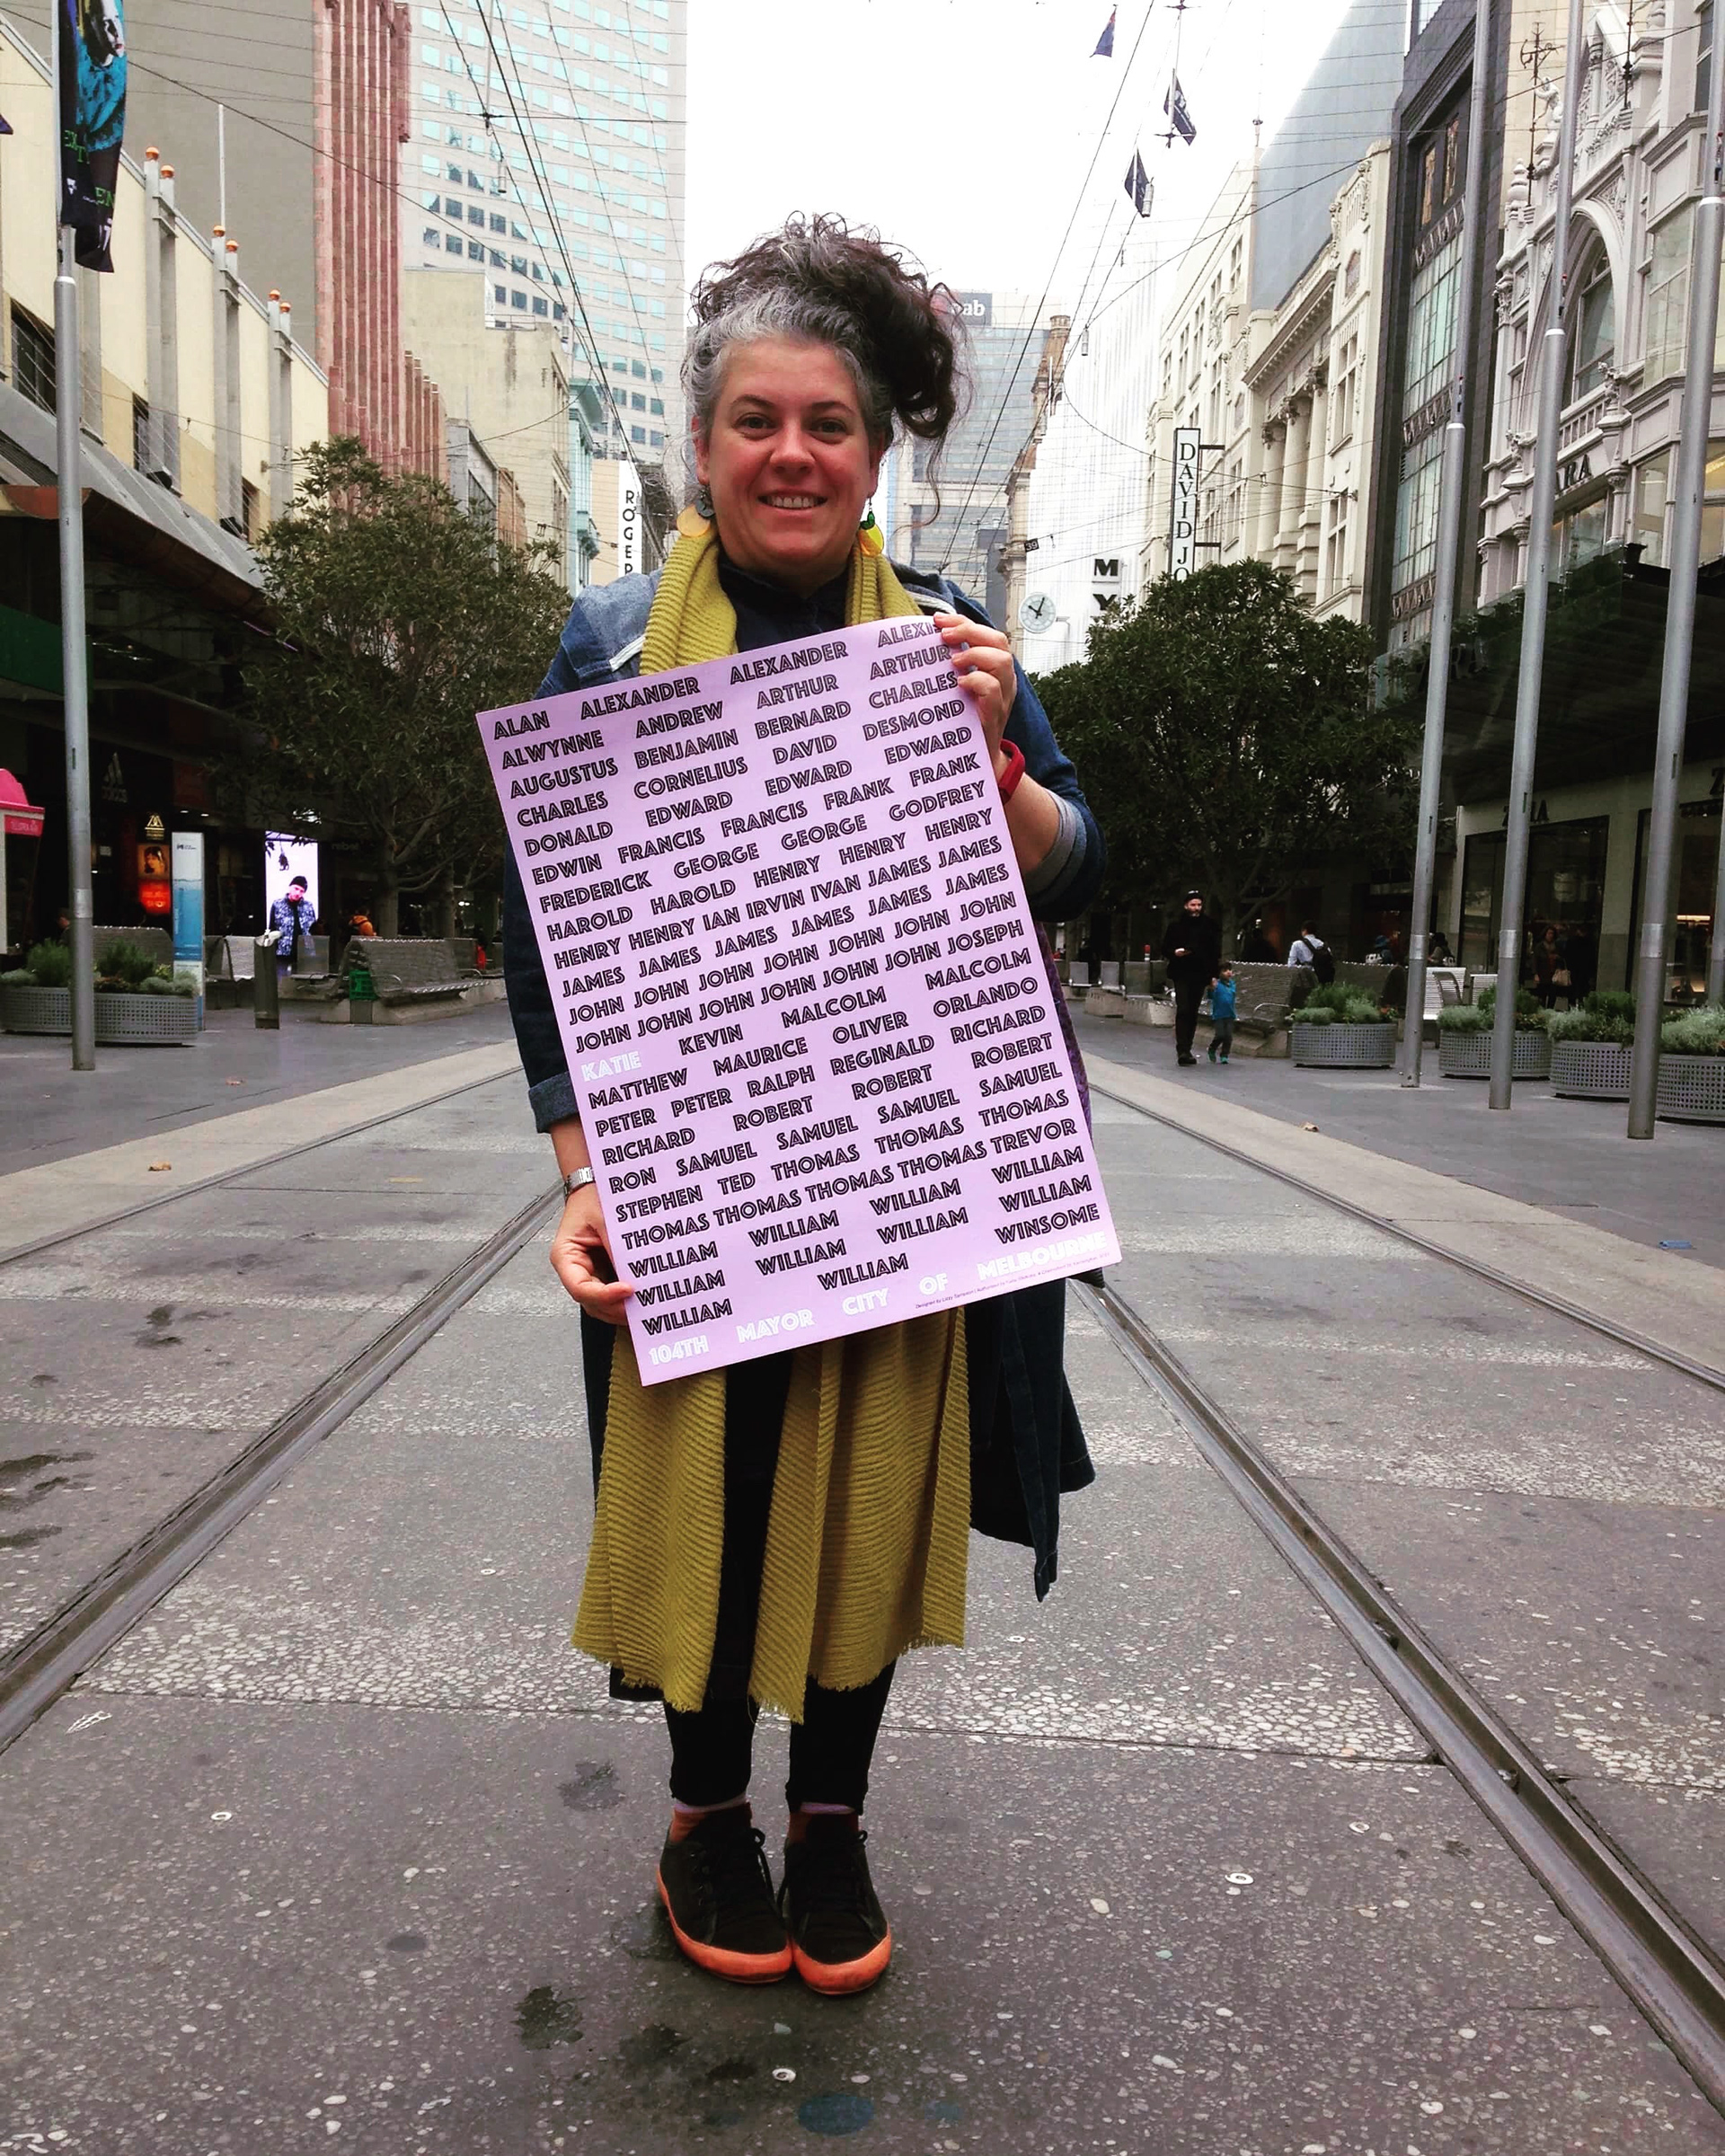 EXIT
nab
ROGER
DAVID JO
MY
ZARA
ZARA
ALAN ALEXANDER ALEXANDER ALEXIS
ALWYNNE ANDREW ARTHUR ARTHUR
AUGUSTUS BENJAMIN BERNARD CHARLES
CHARLES CORNELIUS DAVID DESMOND
DONALD EDWARD EDWARD EDWARD
EDWIN FRANCIS FRANCIS FRANK FRANK
FREDERICK GEORGE GEORGE GODFREY
HAROLD HAROLD HENRY HENRY HENRY
HENRY HENRY IAN IRVIN IVAN JAMES JAMES
JAMES JAMES JAMES JAMES JAMES JAMES
JOHN JOHN JOHN JOHN JOHN JOHN JOHN
JOHN JOHN JOHN JOHN JOHN JOHN JOSEPH
KATIE KEVIN MALCOLM MALCOLM
MATTHEW MAURICE OLIVER ORLANDO
PETER PETER RALPH REGINALD RICHARD
RICHARD ROBERT ROBERT ROBERT
RON SAMUEL SAMUEL SAMUEL SAMUEL
STEPHEN TED THOMAS THOMAS THOMAS
THOMAS THOMAS THOMAS THOMAS TREVOR
WILLIAM WILLIAM WILLIAM WILLIAM
WILLIAM WILLIAM WILLIAM WILLIAM
WILLIAM WILLIAM WINSOME
104TH MAYOR CITY OF MELBOURNE